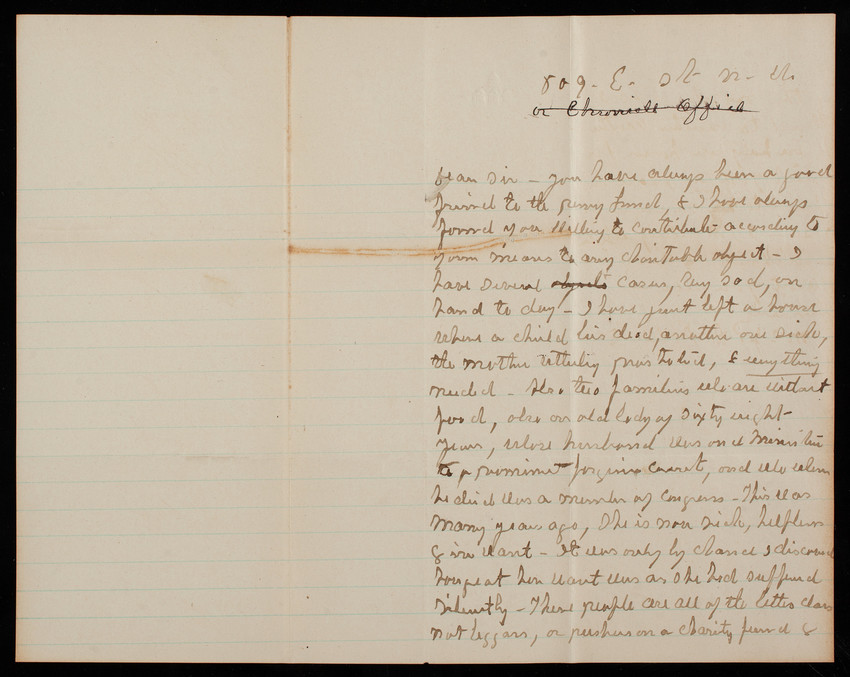 809. E. St N- W.
or Chronicle Office
Dear Sir - you have always been a good
friend to the penny fund, & I have always
found you willing to contribute according to
your means to any charitable object - I
have several objects cases, very sad, on
hand to day - I have just left a house
where a child lies dead, another one sick,
the mother utterly prostrated, & everything
needed - Also two families who are without
food, also an old lady of sixty eight
years, whose husband was once Minister
to a prominent foreign court, and who when
he died was a member of Congress - This was
many years ago, She is now sick, helpless
& in want - It was only by chance I discovered
how great her want was as she had suffered
silently - These people are all of the better class
not beggars, or pushers on a charity fund &